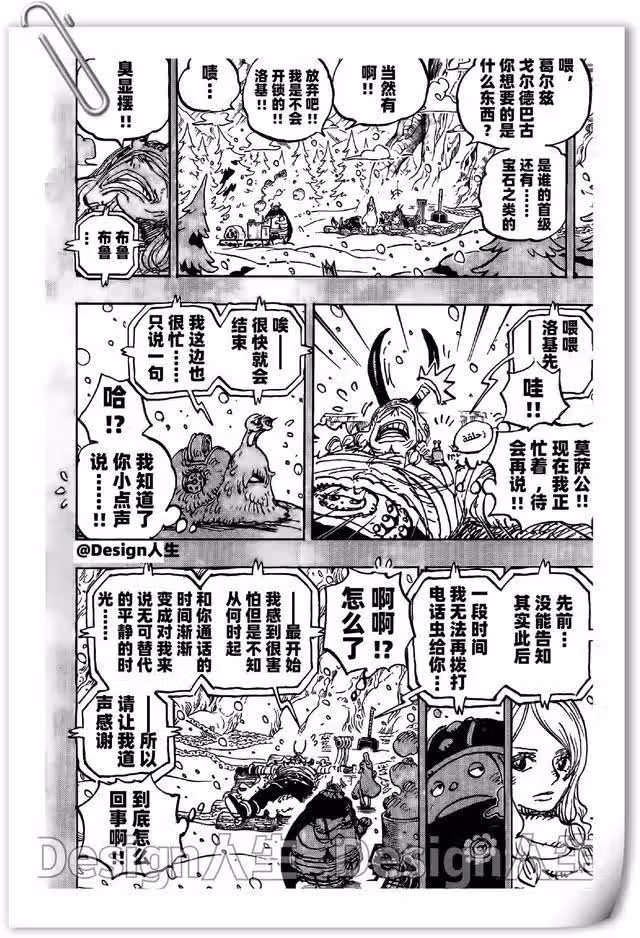 喂，
葛尔兹
戈尔德巴古
你想要的是
什么东西？
是谁的首级
还有……
宝石之类的
当然有
啊!!
放弃吧!!
我是不会
开锁的!!
洛基!!
啧…
臭显摆!!
布鲁
布鲁
…
喂喂
——洛基先
哇!!
莫萨公!!
现在我正
忙着，待
会再说!!
唉——
很快就会
结束
我这边也
很忙……
只说一句
哈!?
我知道了
你小点声
说……!!
@Design人生
先前…
没能告知
其实此后
一段时间
我无法再拨打
电话虫给你…
啊啊!?
怎么了
——最开始
我感到很害
怕但是不知
从何时起
和你通话的
时间渐渐
变成对我来
说无可替代
的平静的时
光……
——所以
请让我道
声感谢
到底怎么
回事啊!!
Design人生
Design人生